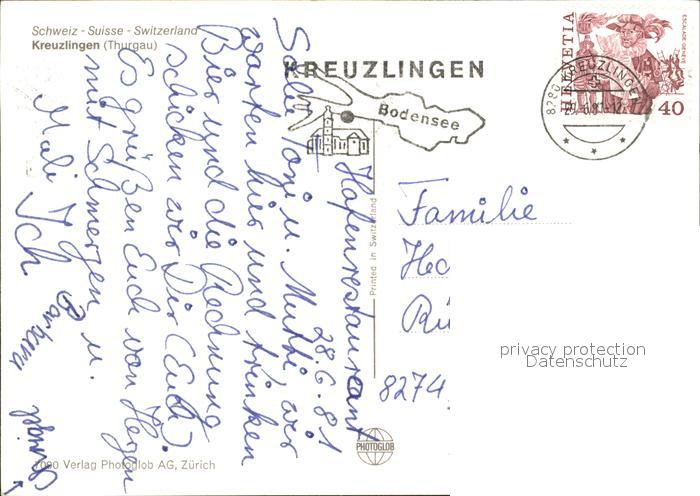 Schweiz - Suisse - Switzerland
Kreuzlingen (Thurgau)
KREUZLINGEN
Bodensee
8280 KREUZLINGEN
HELVETIA
ESCALADE GENEVE
40
Hafenrestaurant
28.6.81
Salü Toni u. Muthi wir
warten hier und trinken
Bier und die Rechnung
schicken wir Dir (Euch).
Es grüßen Euch von Herzen
mit Schmerzen u.
Ich
Barbara
Familie
He
Rü
8274
Printed in Switzerland
privacy protection
Datenschutz
PHOTOGLOB
7090 Verlag Photoglob AG, Zürich